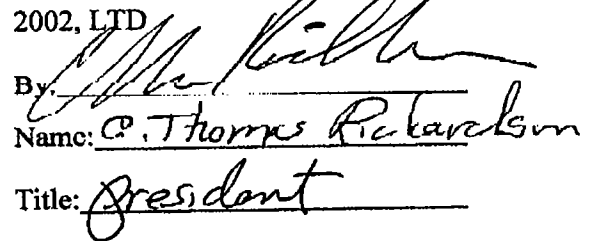 2002, LTD
By:
Name: C. Thomas Richardson
Title: President